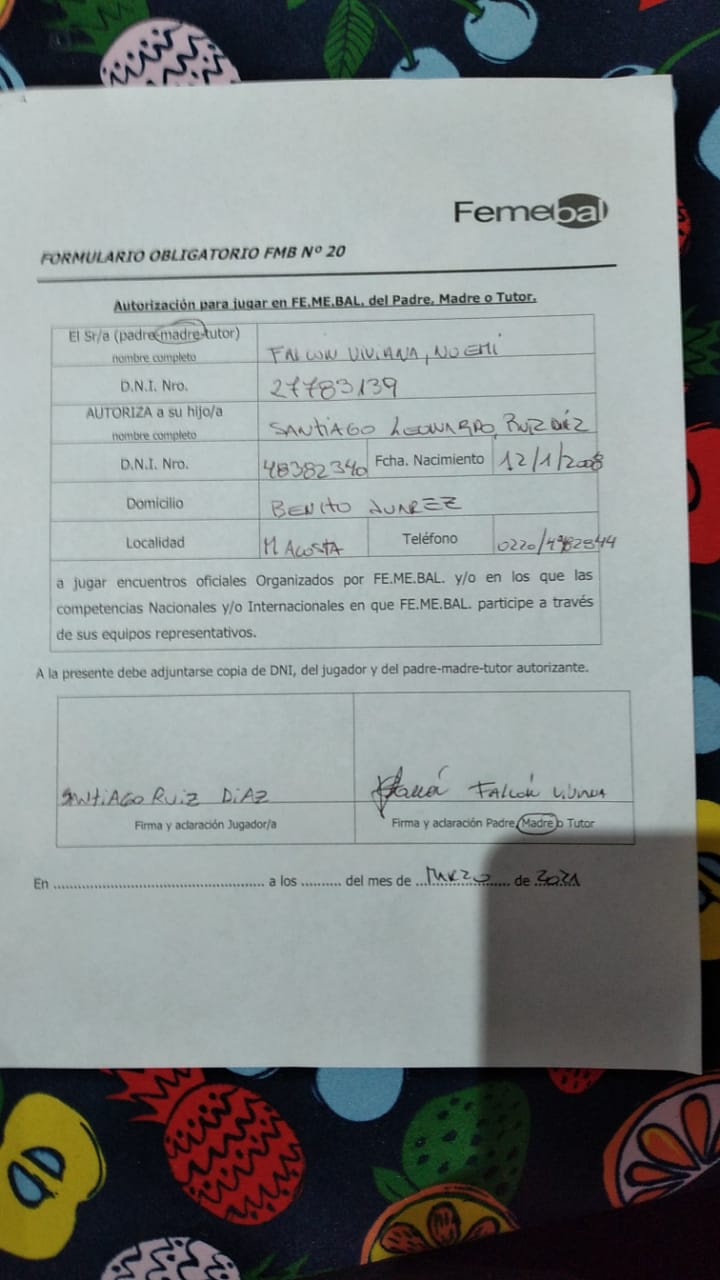 Femebal
FORMULARIO OBLIGATORIO FMB Nº 20
Autorización para jugar en FE.ME.BAL. del Padre, Madre o Tutor.
El Sr/a (padre-madre-tutor)
nombre completo
FALCON VIVIANA, NOEMÍ
D.N.I. Nro.
27783139
AUTORIZA a su hijo/a
nombre completo
SANTIAGO LEONARDO, RUIZ DÍAZ
D.N.I. Nro.
48382340
Fcha. Nacimiento
12/1/2008
Domicilio
BENITO JUAREZ
Localidad
M ACOSTA
Teléfono
0220/4982844
a jugar encuentros oficiales Organizados por FE.ME.BAL. y/o en los que las
competencias Nacionales y/o Internacionales en que FE.ME.BAL. participe a través
de sus equipos representativos.
A la presente debe adjuntarse copia de DNI, del jugador y del padre-madre-tutor autorizante.
SANTIAGO RUIZ DIAZ
FALCÓN VIVIANA
Firma y aclaración Jugador/a
Firma y aclaración Padre, Madre o Tutor
En ................................................ a los ......... del mes de MARZO de 2021